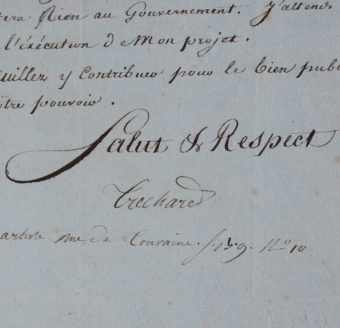 tera Rien au Gouvernement. J'attends
l'exécution de Mon projet.
uillez y Contribuer pour le bien pub
otre pouvoir.
Salut & Respect
Trechard
artiste rue de Touraine. f. No 10